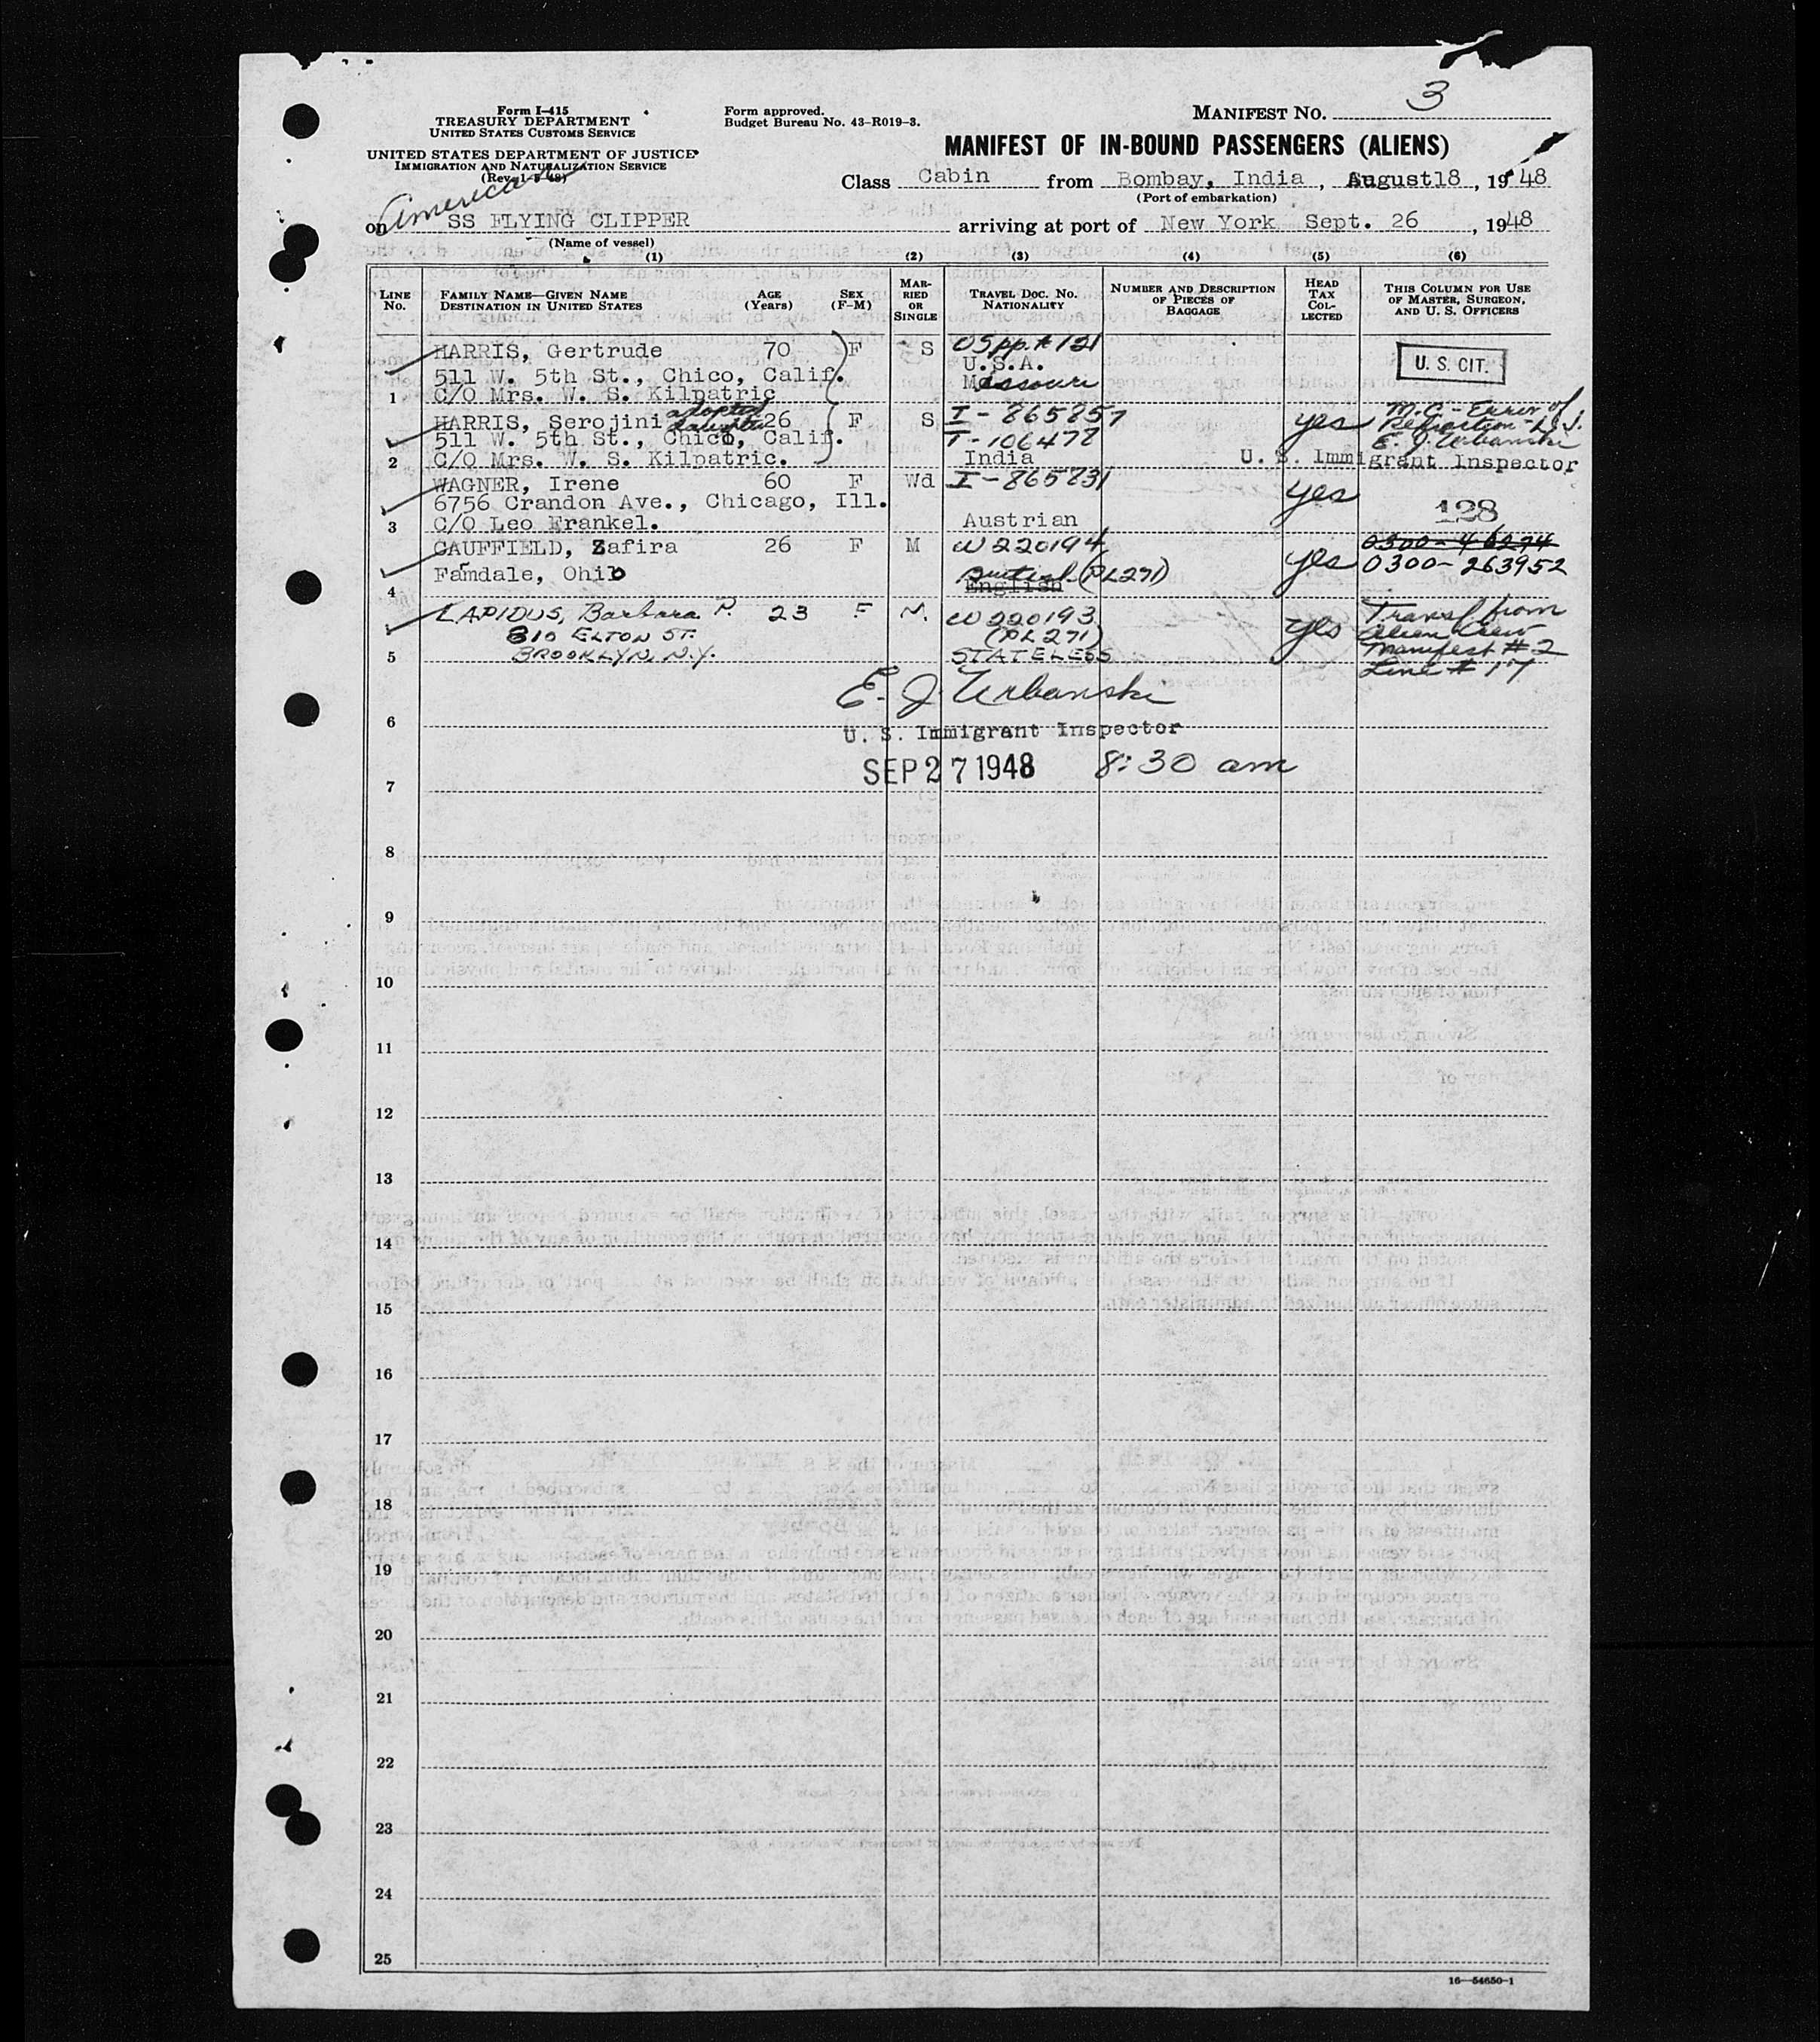 3
Form I-415
TREASURY DEPARTMENT
UNITED STATES CUSTOMS SERVICE
UNITED STATES DEPARTMENT OF JUSTICE
IMMIGRATION AND NATURALIZATION SERVICE
(Rev. 1-5-48)
Form approved.
Budget Bureau No. 43-R019-3.
MANIFEST No.
MANIFEST OF IN-BOUND PASSENGERS (ALIENS)
Class Cabin from Bombay, India, August 18, 1948
(Port of embarkation)
American
on SS FLYING CLIPPER arriving at port of New York Sept. 26, 1948
(Name of vessel)
(1) (2) (3) (4) (5) (6)
LINE No.
FAMILY NAME—GIVEN NAME
DESTINATION IN UNITED STATES
AGE (Years)
SEX (F-M)
MARRIED OR SINGLE
TRAVEL DOC. No. NATIONALITY
NUMBER AND DESCRIPTION OF PIECES OF BAGGAGE
HEAD TAX COLLECTED
THIS COLUMN FOR USE OF MASTER, SURGEON, AND U. S. OFFICERS
HARRIS, Gertrude 70 F S
511 W. 5th St., Chico, Calif. U.S.A. U. S. CIT.
1 C/O Mrs. W. S. Kilpatric Missouri
HARRIS, Serojini adopted daughter 26 F S I-865857 yes M.C.- Error of
511 W. 5th St., Chico, Calif. T-106478 Refraction
E. J. Urbanski
2 C/O Mrs. W. S. Kilpatric. India U. S. Immigrant Inspector
WAGNER, Irene 60 F Wd I-865831 yes
6756 Crandon Ave., Chicago, Ill. 128
3 C/O Leo Frankel. Austrian
CAUFFIELD, Zafira 26 F M W220194 yes 0300-46274
0300-263952
Famdale, Ohio British (PL271)
4 English
LAPIDUS, Barbara P. 23 F M. W220193 yes Transf from
810 ELTON ST. (PL271) Alien Crew
5 BROOKLYN, N.Y. STATELESS Manifest #2
Line #17
E. J. Urbanski
6
U. S. Immigrant Inspector
SEP 27 1948 8:30 am
7
8
9
10
11
12
13
14
15
16
17
18
19
20
21
22
23
24
25
16—54650-1